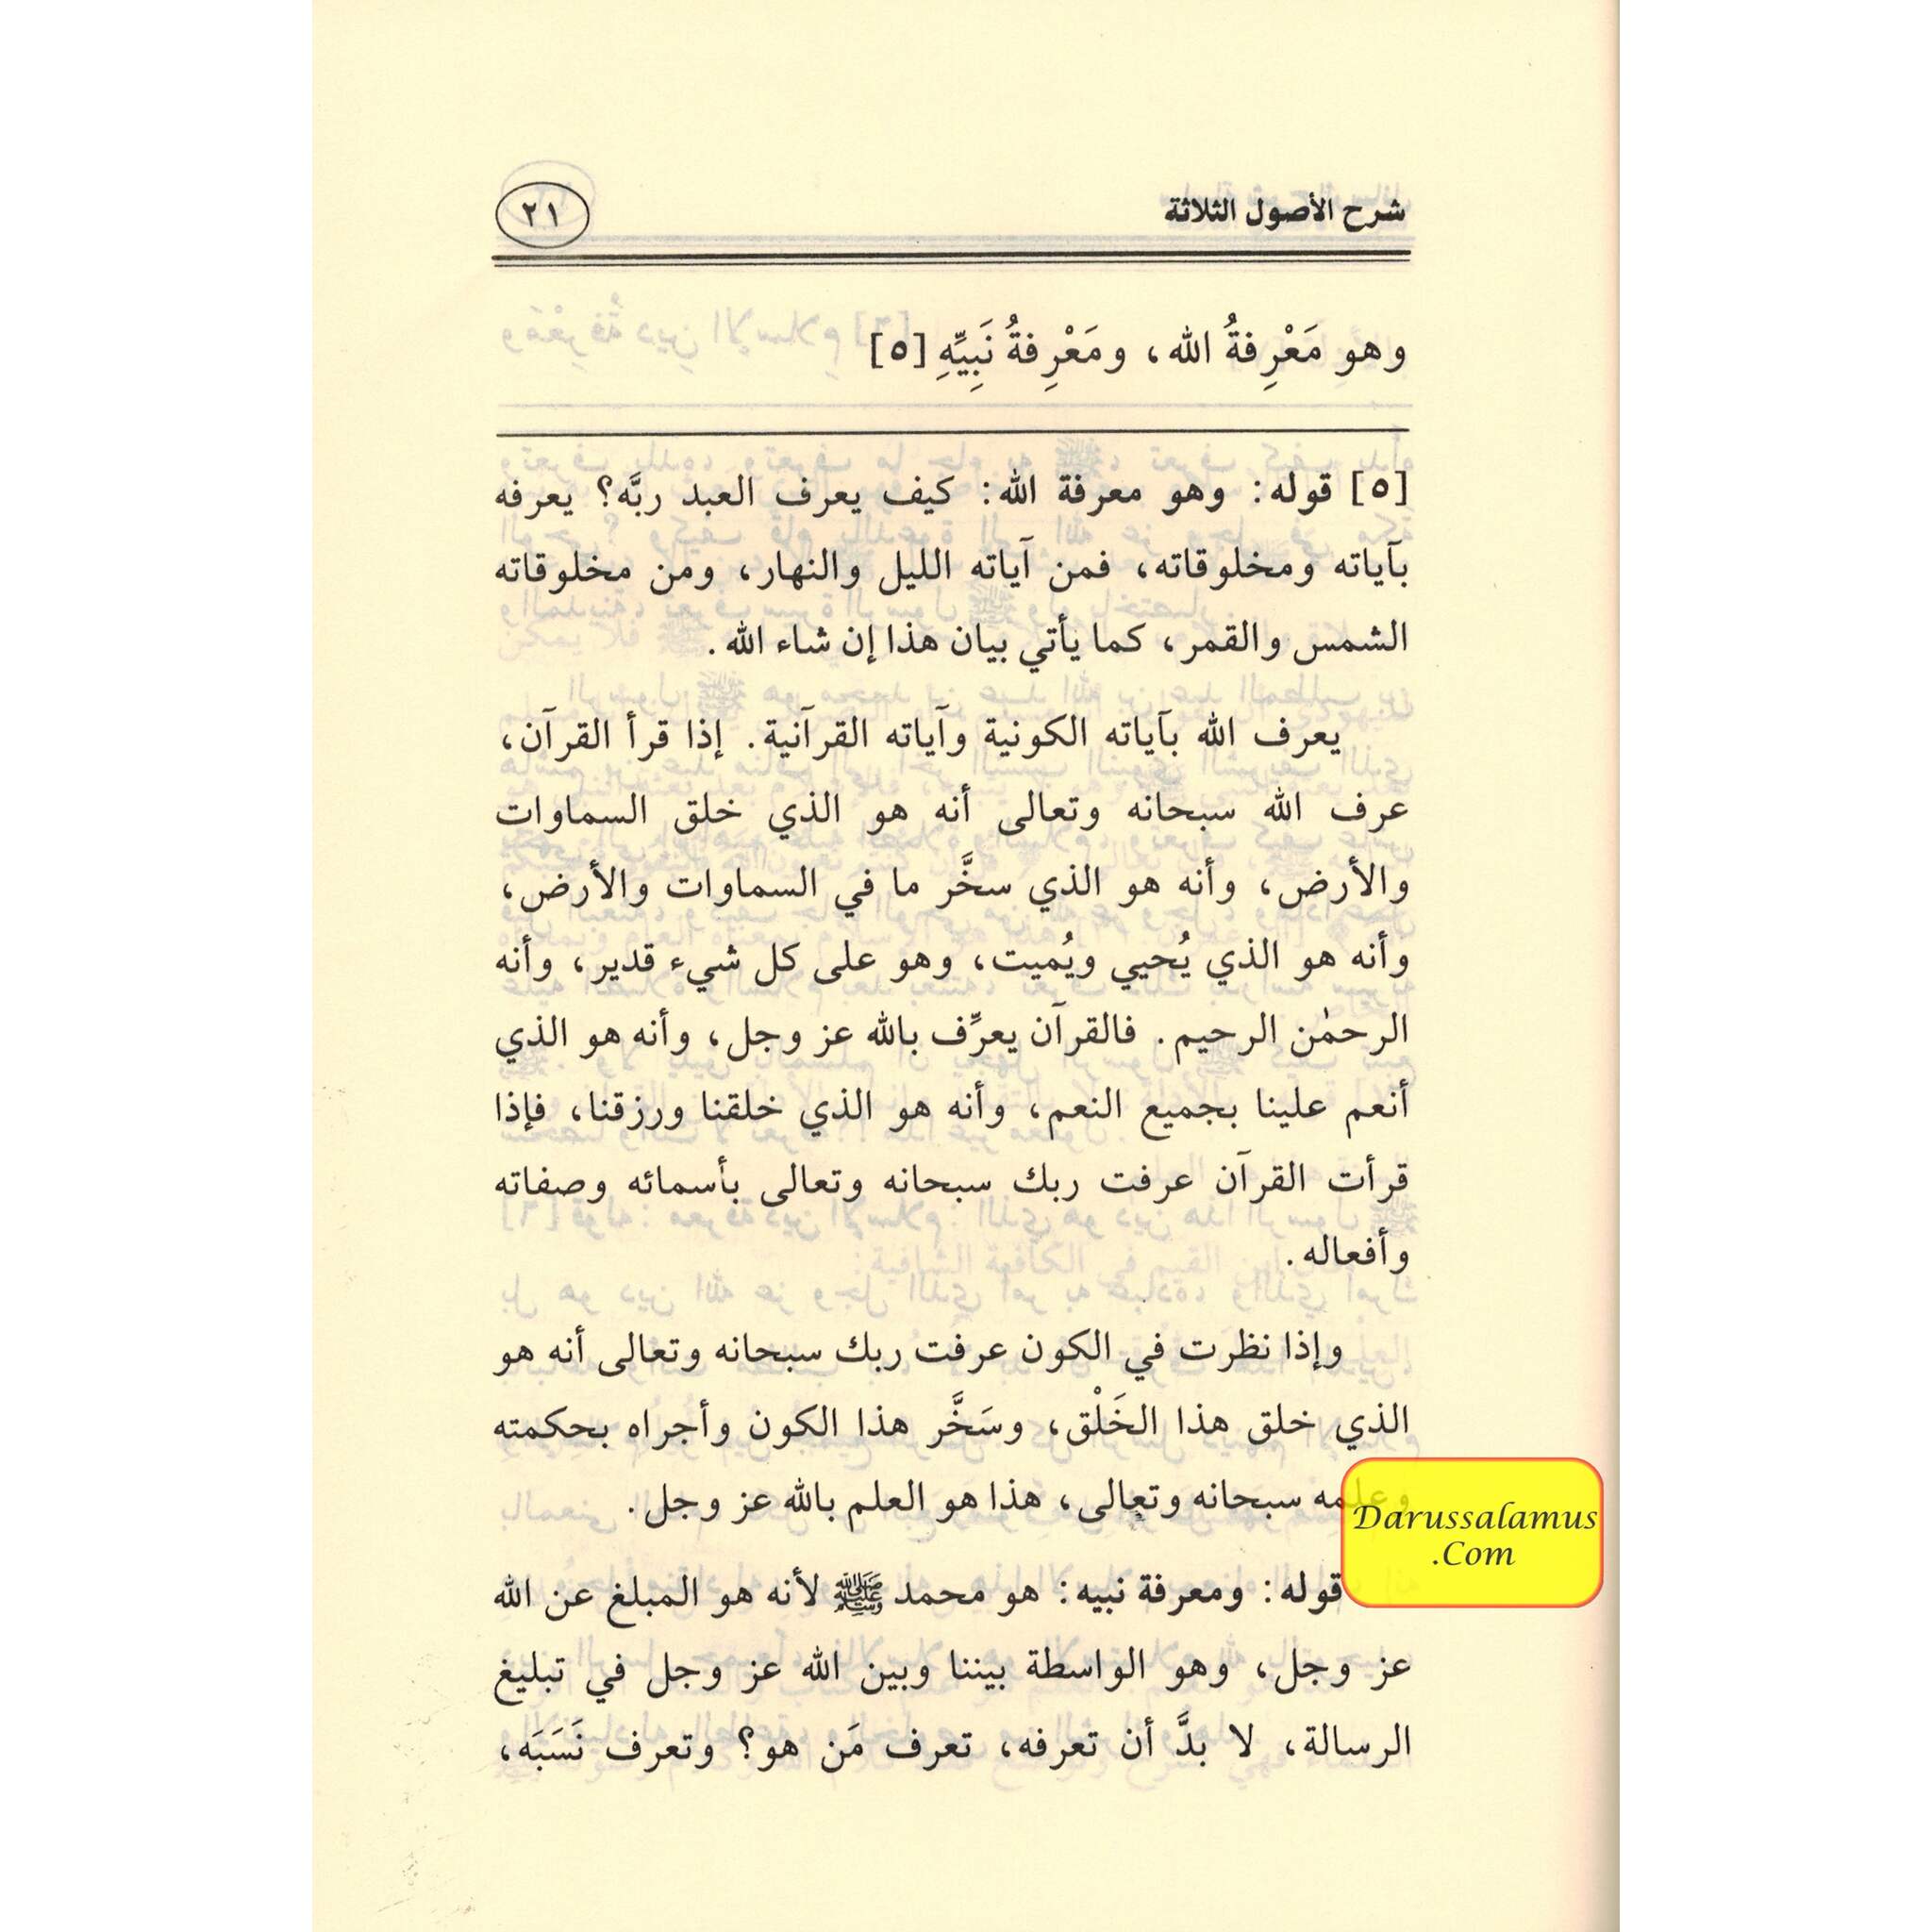 شرح الأصول الثلاثة
٢١
وهو مَعْرِفةُ الله، ومَعْرِفةُ نَبِيِّهِ [٥]
[٥] قوله: وهو معرفة الله: كيف يعرف العبد ربَّه؟ يعرفه
بآياته ومخلوقاته، فمن آياته الليل والنهار، ومن مخلوقاته
الشمس والقمر، كما يأتي بيان هذا إن شاء الله.
يعرف الله بآياته الكونية وآياته القرآنية. إذا قرأ القرآن،
عرف الله سبحانه وتعالى أنه هو الذي خلق السماوات
والأرض، وأنه هو الذي سخَّر ما في السماوات والأرض،
وأنه هو الذي يُحيي ويُميت، وهو على كل شيء قدير، وأنه
الرحمٰن الرحيم. فالقرآن يعرِّف بالله عز وجل، وأنه هو الذي
أنعم علينا بجميع النعم، وأنه هو الذي خلقنا ورزقنا، فإذا
قرأت القرآن عرفت ربك سبحانه وتعالى بأسمائه وصفاته
وأفعاله.
وإذا نظرت في الكون عرفت ربك سبحانه وتعالى أنه هو
الذي خلق هذا الخَلْق، وسَخَّر هذا الكون وأجراه بحكمته
وعلمه سبحانه وتعالى، هذا هو العلم بالله عز وجل.
قوله: ومعرفة نبيه: هو محمد ﷺ لأنه هو المبلغ عن الله
عز وجل، وهو الواسطة بيننا وبين الله عز وجل في تبليغ
الرسالة، لا بدَّ أن تعرفه، تعرف مَن هو؟ وتعرف نَسَبَه،
Darussalamus
.Com